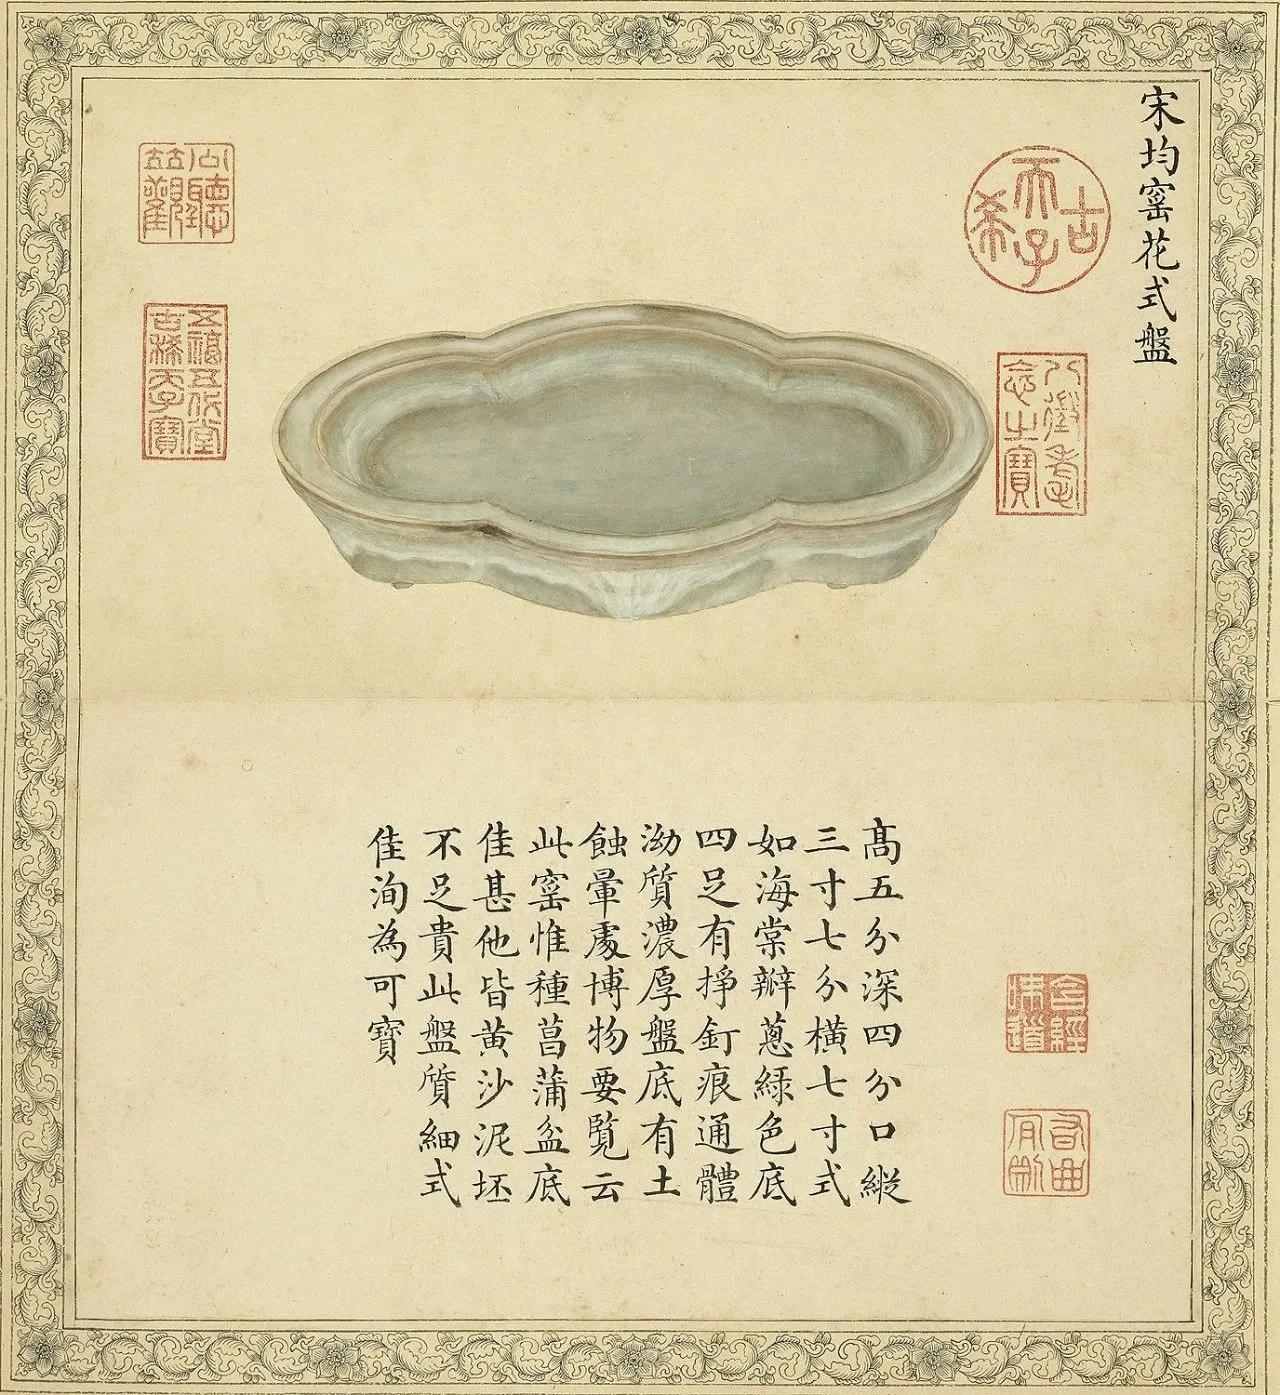 宋均窰花式盤
古希天子
八徵耄念之寶
公聽並觀
五福五代堂古稀天子寶
髙五分深四分口縱
三寸七分橫七寸式
如海棠瓣蔥綠色底
四足有掙釘痕通體
泑質濃厚盤底有土
蝕暈處博物要覧云
此窰惟種菖蒲盆底
佳甚他皆黄沙泥坯
不足貴此盤質細式
佳洵為可寶
含經味道